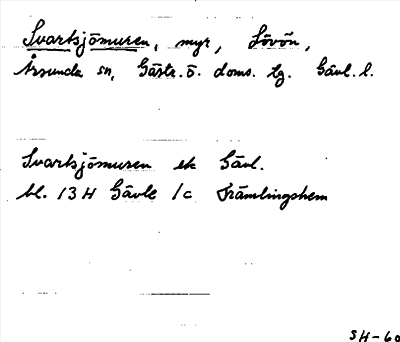 Svartsjömuren, myr, Lövön,
Årsunda sn, Gästr. ö. doms. lg. Gävl. l.
Svartsjömuren ek Gävl.
bl. 13 H Gävle 1c Främlingshem
SH-60